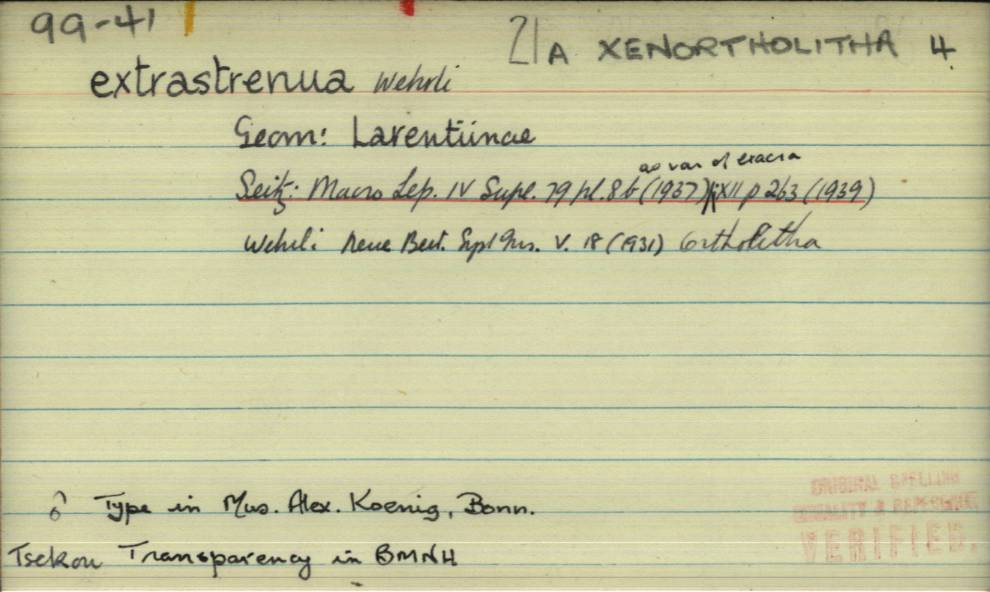 99-41
21A XENORTHOLITHA 4
extrastrenua Wehrli
Geom: Larentiinae
as var of exacra
Seitz: Macro Lep. IV Supl. 79 pl. 8b (1937) XII p 263 (1939)
Wehrli Neue Beit. Syst Ins. V. 18 (1931) Ortholitha
♂ Type in Mus. Alex. Koenig, Bonn.
Tsekou Transparency in BMNH
ORIGINAL SPELLING
LOCALITY & REFERENCE
VERIFIED.